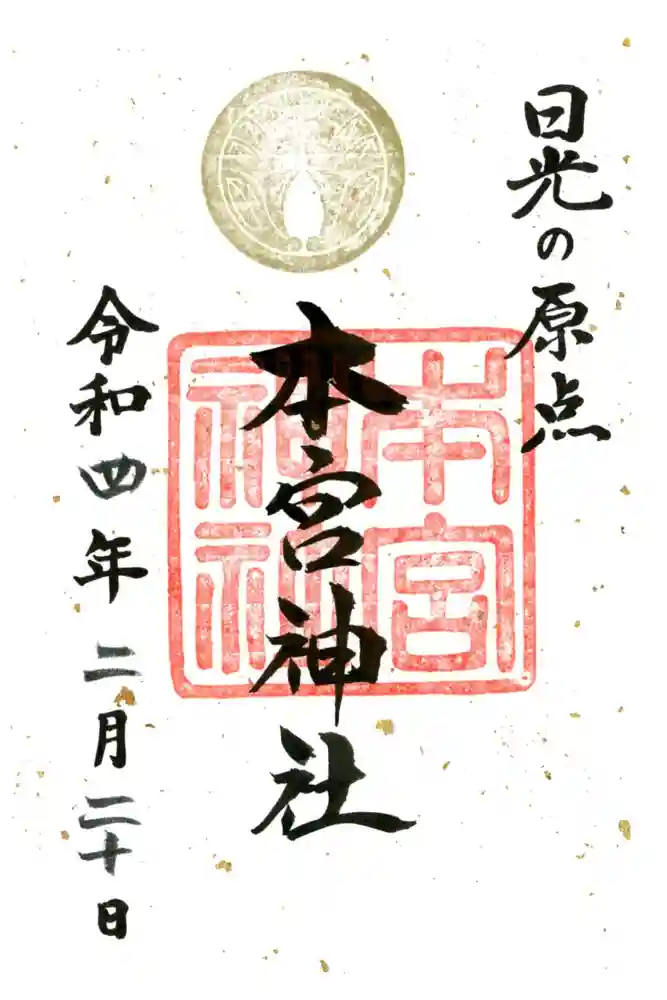 日光の原点
本宮神社
本宮神社
令和四年二月二十日